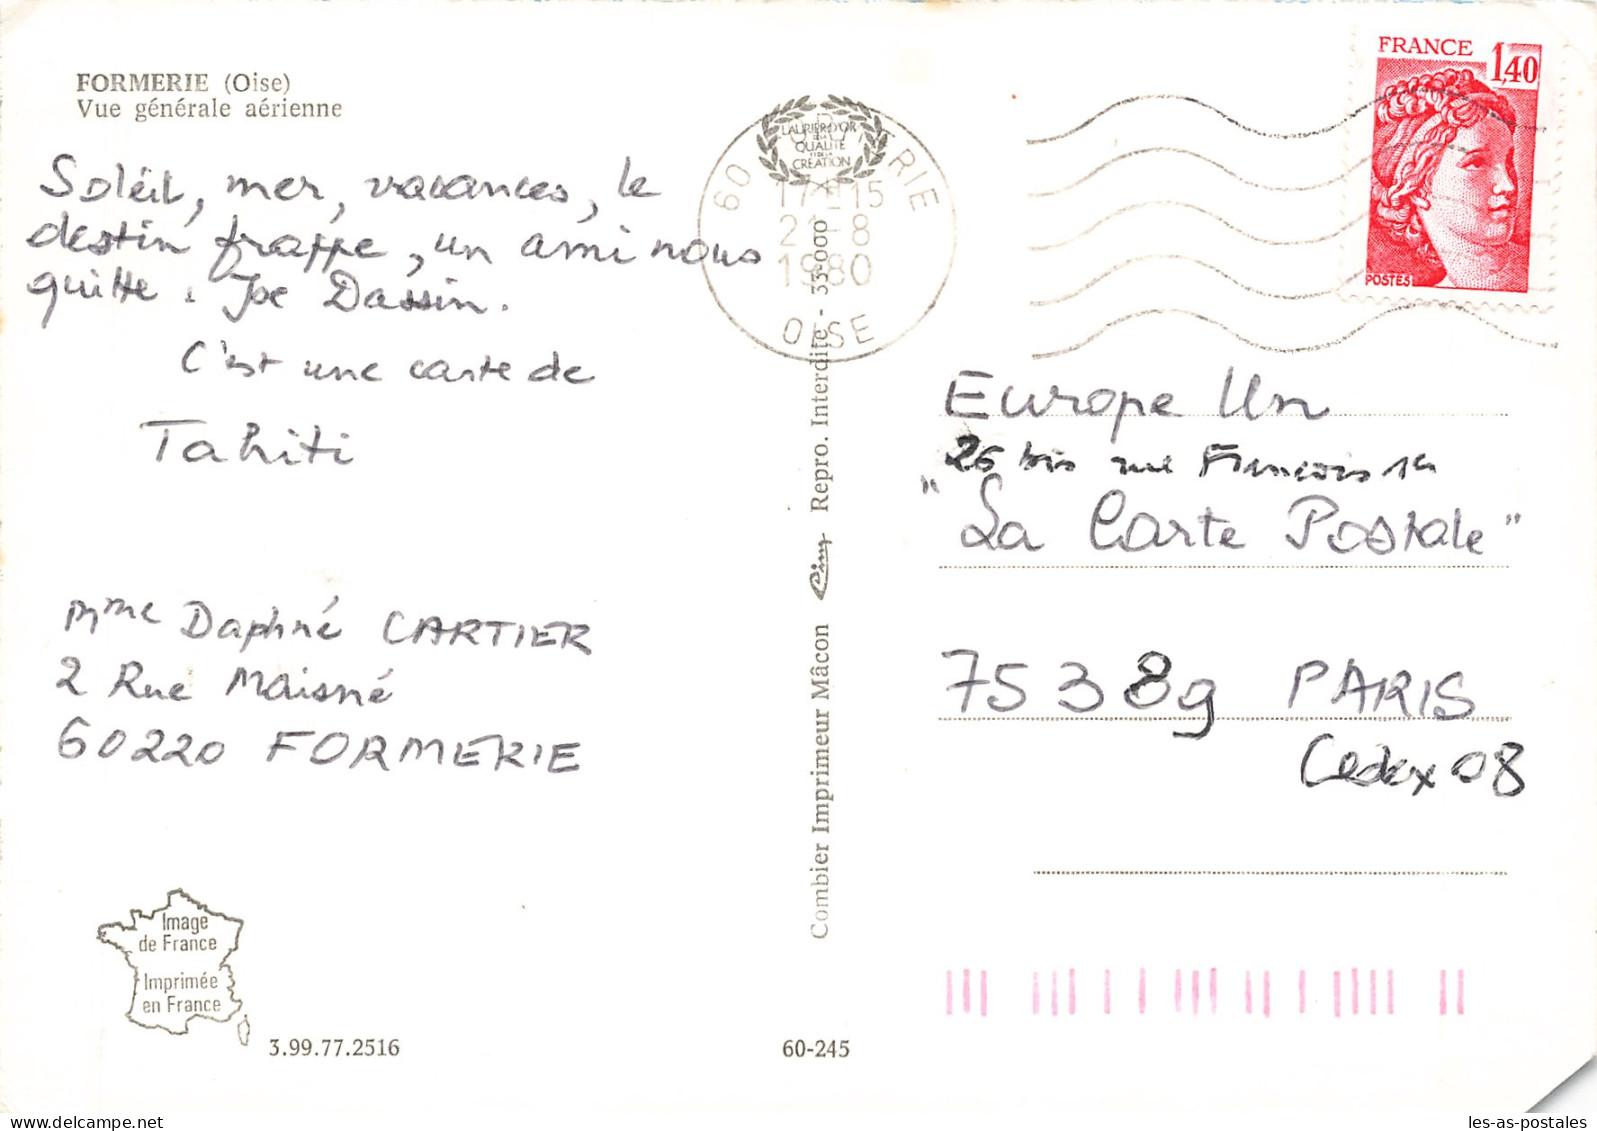 FORMERIE (Oise)
Vue générale aérienne
Soléil, mer, vacances, le
destin frappe, un ami nous
quitte. Joe Dassin.
C'est une carte de
Tahiti
Mme Daphné CARTIER
2 Rue Maisné
60220 FORMERIE
Image
de France
Imprimée
en France
3.99.77.2516
60-245
Combier Imprimeur Mâcon Cim Repro. Interdite - 33-000
LAURIER D'OR
DE LA
QUALITÉ
ET DE LA
CRÉATION
60 RIE
17 15
21-8
1980
OISE
FRANCE 1,40
POSTES
Europe Un
26 bis rue François 1er
"La Carte Postale"
75389 PARIS
Cedex 08
les-as-postales